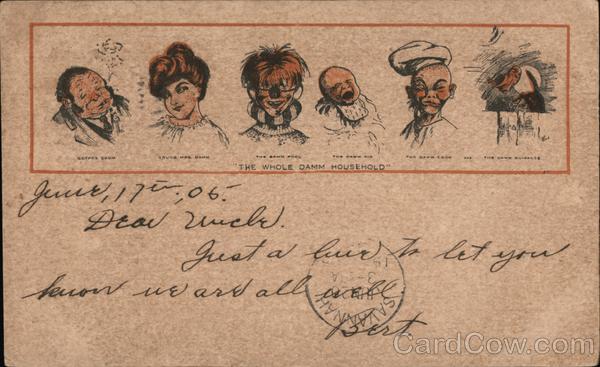 YOUNG MRS. DAMN
THE DAMN FOOL
THE DAMN KID
THE DAMN COOK AND
"THE WHOLE DAMM HOUSEHOLD"
June, 17th, 05.
Dear Uncle.
Just a line to let you
know we are all well.
Bert.
SAVANNAH
CardCow.com